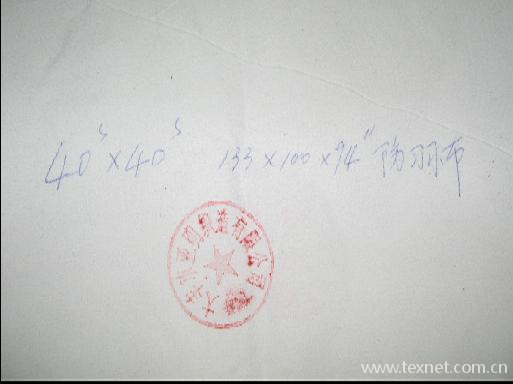 40ˢ×40ˢ 133×100×94" 防羽布
有限公司
www.texnet.com.cn